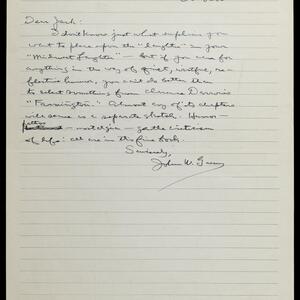 Dear Jack:
I don't know just what emphasis you
want to place upon the "laughter" in your
"Midwest Laughter" — but if you care for
anything in the way of quiet, wistful, re-
flective humor, you can't do better than
to select something from Clarence Darrow's
"Farmington." Almost any of its chapters
will serve as a separate sketch. Humor —
pathos — nostalgia — gentle criticism
of life: all are in this fine book.
Sincerely,
John W.